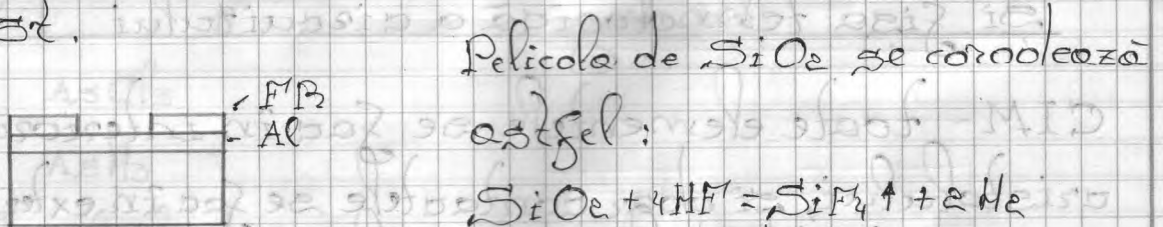 st.
Pelicola de SiO2 se corodează
astfel:
FR
Al
SiO2 + 4HF = SiF4 ↑ + 2 H2